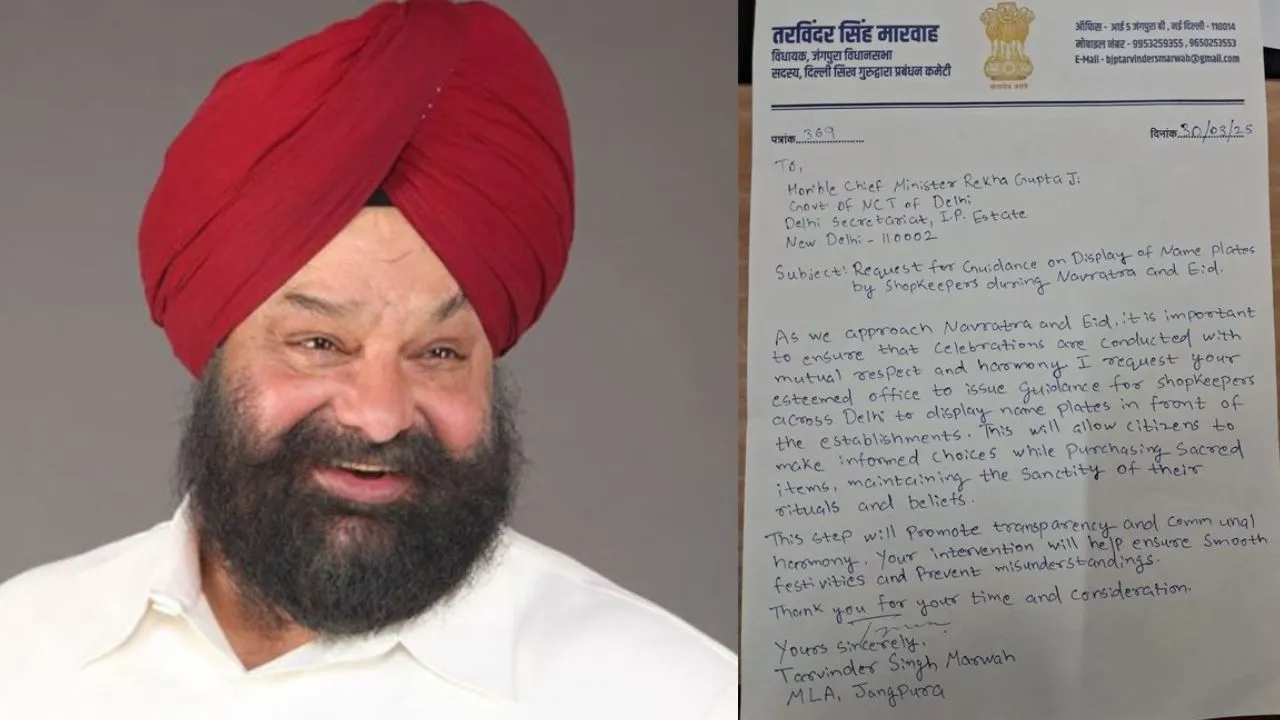 तरविंदर सिंह मारवाह
विधायक, जंगपुरा विधानसभा
सदस्य, दिल्ली सिख गुरुद्वारा प्रबंधन कमेटी
सत्यमेव जयते
ऑफिस - आई 5 जंगपुरा बी, नई दिल्ली - 110014
मोबाइल नंबर - 9953259355, 9650253553
E-Mail - bjptarvindersmarwah@gmail.com
पत्रांक 369
दिनांक 30/03/25
To,
Hon'ble Chief Minister Rekha Gupta Ji
Govt of NCT of Delhi
Delhi Secretariat, I.P. Estate
New Delhi - 110002
Subject: Request for Guidance on Display of Name Plates
by Shopkeepers during Navratra and Eid.
As we approach Navratra and Eid, it is important
to ensure that celebrations are conducted with
mutual respect and harmony I request your
esteemed office to issue guidance for shopkeepers
across Delhi to display name plates in front of
the establishments. This will allow citizens to
make informed choices while purchasing sacred
items, maintaining the sanctity of their
rituals and beliefs.
This step will promote transparency and communal
harmony. Your intervention will help ensure smooth
festivities and prevent misunderstandings.
Thank you for your time and consideration.
Yours sincerely,
Tarvinder Singh Marwah
MLA, Jangpura